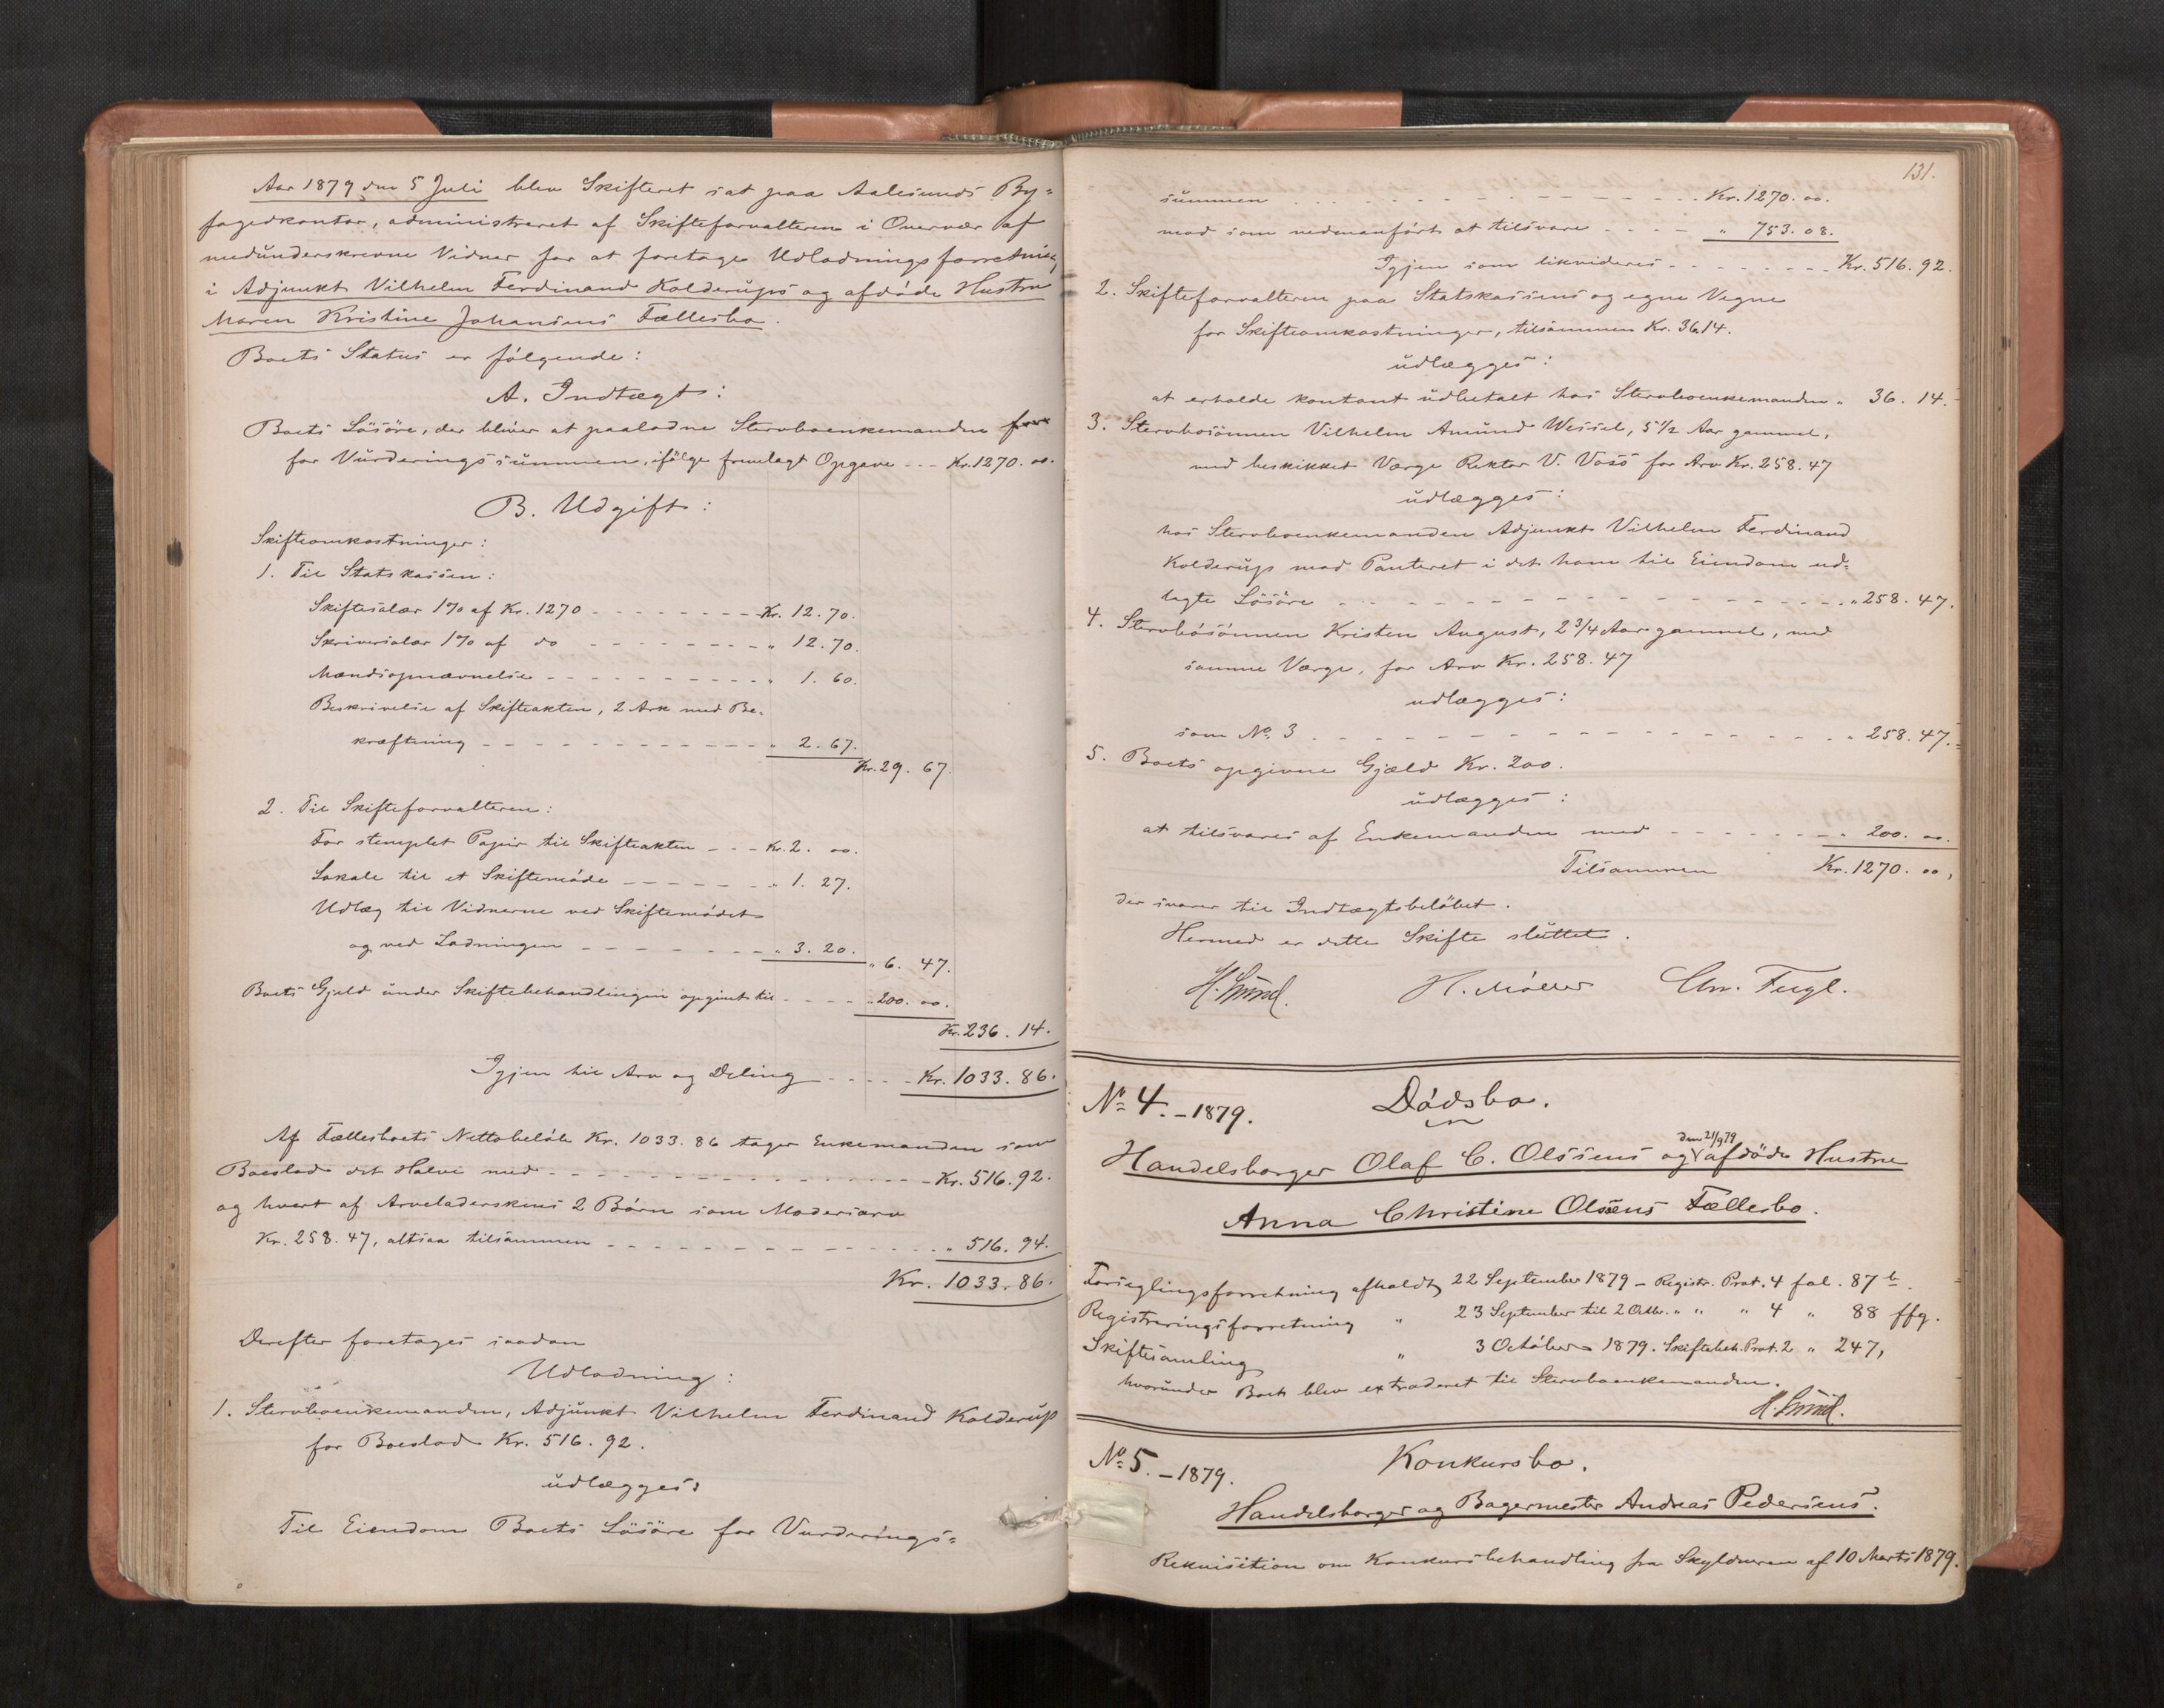 Aar 1879 den 5 Juli blev Skifteret sat paa Aalesunds By=
fogedkontor, administreret af Skifteforvalteren i Overvær af
medunderskrevne Vidner for at foretage Udlodningsforretning
i Adjunkt Vilhelm Ferdinand Kolderups og afdøde Hustru
Maren Kristine Johansens Fællesbo.
Boets Status er følgende:
A. Indtægt:
Boets Løsøre, der bliver at paalodne Stervboenkemanden
for Vurderingssummen, ifølge fremlagt Opgave - - - Kr. 1270. 00.
B. Udgift:
Skifteomkostninger:
1. Til Statskassen:
Skiftesalær 1% af Kr. 1270 - - - - - - - - - Kr. 12. 70.
Skriversalær 1% af do - - - - - - - - - " 12. 70.
Mandsopnævnelse - - - - - - - - - - - " 1. 60.
Beskrivelse af Skifteakten, 2 Ark med Be-
kræftning - - - - - - - - - - - - - - " 2. 67.
Kr. 29. 67.
2. Til Skifteforvalteren:
For stemplet Papir til Skifteakten - - - Kr. 2. 00.
Lokale til et Skiftemøde - - - - - - - - " 1. 27.
Udlæg til Vidnerne ved Skiftemødet
og ved Lodningen - - - - - - - - - - " 3. 20.
" 6. 47.
Boets Gjeld under Skiftebehandlingen opgivet til - - - - - " 200. 00.
Kr. 236. 14.
Igjen til Arv og Deling - - - - - Kr. 1033. 86.
Af Fællesboets Nettobeløb Kr. 1033. 86 tager Enkemanden som
Boeslod det Halve med - - - - - - - - - - - - - - - - Kr. 516. 92.
og hvert af Arveladerskens 2 Børn som Modersarv
Kr. 258. 47, altsaa tilsammen - - - - - - - - - - - - - - " 516. 94.
Kr. 1033. 86.
Derefter foretages saadan
Udlodning:
1. Stervboenkemanden, Adjunkt Vilhelm Ferdinand Kolderup
for Boeslod Kr. 516. 92.
udlægges:
Til Eiendom Boets Løsøre for Vurderings=
131.
summen - - - - - - - - - - - - - - - - Kr. 1270. 00.
mod som nedenanført at tilsvare - - - - - " 753. 08.
Igjen som likvideres - - - - - - - - Kr. 516. 92.
2. Skifteforvalteren paa Statskassens og egne Vegne
for Skifteomkostninger, tilsammen Kr. 36.14.
udlægges:
at erholde kontant udbetalt hos Stervboenkemanden " 36. 14.
3. Stervbosønnen Vilhelm Amund Wessel, 5 1/2 Aar gammel,
med beskikket Værge Rektor V. Voss for Arv Kr. 258. 47
udlægges:
hos Stervboenkemanden Adjunkt Vilhelm Ferdinand
Kolderup mod Panteret i det ham til Eiendom ud=
lagte Løsøre - - - - - - - - - - - - - - - - - - - - " 258. 47.
4. Stervbosønnen Kristen August, 2 3/4 Aar gammel, med
samme Værge, for Arv Kr. 258. 47
udlægges:
som No. 3 - - - - - - - - - - - - - - - - - - - - " 258. 47.
5. Boets opgivne Gjæld Kr. 200.
udlægges:
at tilsvares af Enkemanden med - - - - - - - - - " 200. 00.
Tilsammen Kr. 1270. 00,
der svarer til Indtægtsbeløbet.
Hermed er dette Skifte sluttet.
H. Møller Chr. Fugl.
No. 4. - 1879. Dødsbo.
den 21/9 79
Handelsborger Olaf C. Olssens og afdøde Hustru
Anna Christine Olsens Fællesbo.
Forseglingsforretning afholdt 22 September 1879 - Registr. Prot. 4 fol. 87 b.
Registreringsforretning " 23 September til 2 Octbr. " " " 4 " 88 ffg.
Skiftesamling " 3 October 1879. Skiftebeh. Prot. 2 " 247,
hvorunder Boet blev extraderet til Stervboenkemanden.
No. 5. - 1879. Konkursbo.
Handelsborger og Bagermester Andreas Pedersens.
Rekvisition om Konkursbehandling fra Skyldneren af 10 Marts 1879.